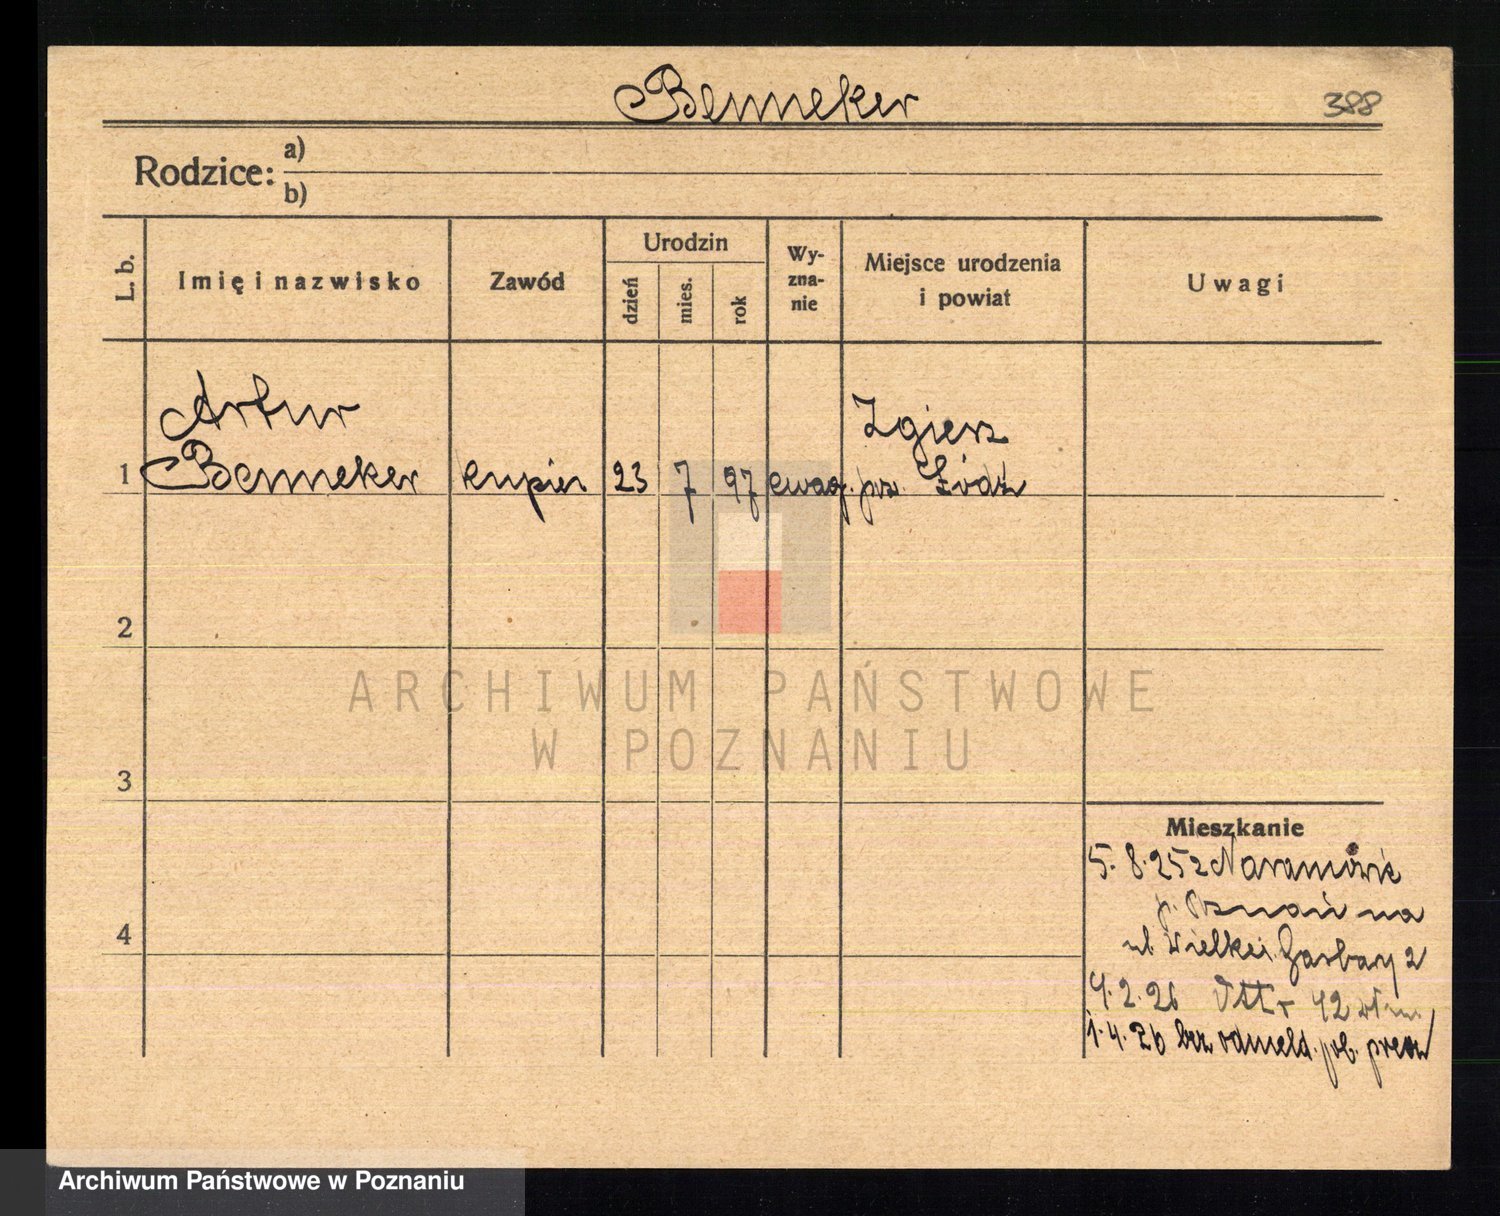 Benneker
388
Rodzice: a)
b)
L. b.
Imię i nazwisko
Zawód
Urodzin
dzień
mies.
rok
Wy-
zna-
nie
Miejsce urodzenia
i powiat
Uwagi
Artur
Zgierz
1 Benneker kupiec 23 7 97 ewag. pow. Łódź
2
ARCHIWUM PAŃSTWOWE
W POZNANIU
3
Mieszkanie
5. 8. 25 z Naramowic
p. Poznań na
4
ul. Wielkie Garbary 2
9. 2. 26 42
1. 4. 26 bez odmeld.
Archiwum Państwowe w Poznaniu